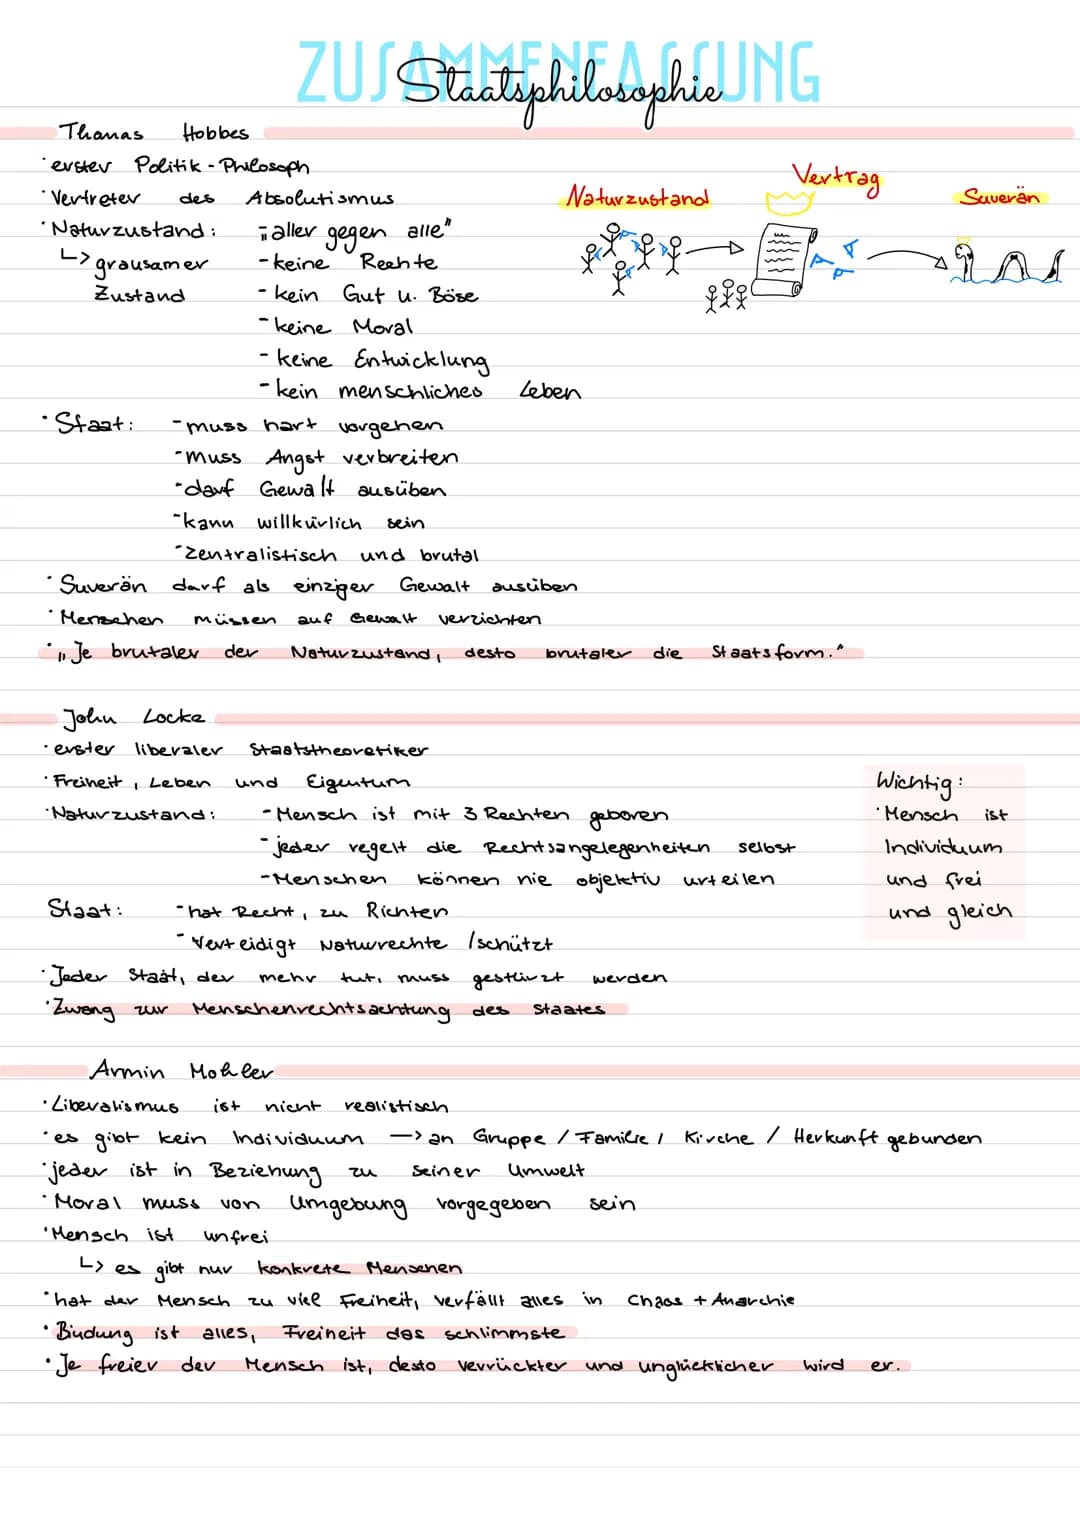 ZUSAMMENFASSUNG
Staatsphilosophie
Thomas Hobbes
· erster Politik-Philosoph
· Vertreter des Absolutismus
· Naturzustand: „aller gegen alle"
↳ grausamer Zustand
- keine Rechte
- kein Gut u. Böse
- keine Moral
- keine Entwicklung
- kein menschliches Leben
Naturzustand
Vertrag
Suverän
· Staat: - muss hart vorgehen
- muss Angst verbreiten
- darf Gewalt ausüben
- kann willkürlich sein
- zentralistisch und brutal
· Suverän darf als einziger Gewalt ausüben
· Menschen müssen auf Gewalt verzichten
· „Je brutaler der Naturzustand, desto brutaler die Staatsform."
John Locke
· erster liberaler Staatstheoretiker
· Freiheit, Leben und Eigentum
· Naturzustand: - Mensch ist mit 3 Rechten geboren
- jeder regelt die Rechtsangelegenheiten selbst
- Menschen können nie objektiv urteilen
Wichtig:
· Mensch ist
Individuum
und frei
und gleich
Staat: - hat Recht, zu Richten
- Verteidigt Naturrechte /schützt
· Jeder Staat, der mehr tut, muss gestürzt werden
· Zwang zur Menschenrechtsachtung des Staates
Armin Mohler
· Liberalismus ist nicht realistisch
· es gibt kein Individuum —> an Gruppe / Familie / Kirche / Herkunft gebunden
· jeder ist in Beziehung zu seiner Umwelt
· Moral muss von Umgebung vorgegeben sein
· Mensch ist unfrei
↳ es gibt nur konkrete Menschen
· hat der Mensch zu viel Freiheit, verfällt alles in Chaos + Anarchie
· Bindung ist alles, Freiheit das schlimmste
· Je freier der Mensch ist, desto verrückter und unglücklicher wird er.